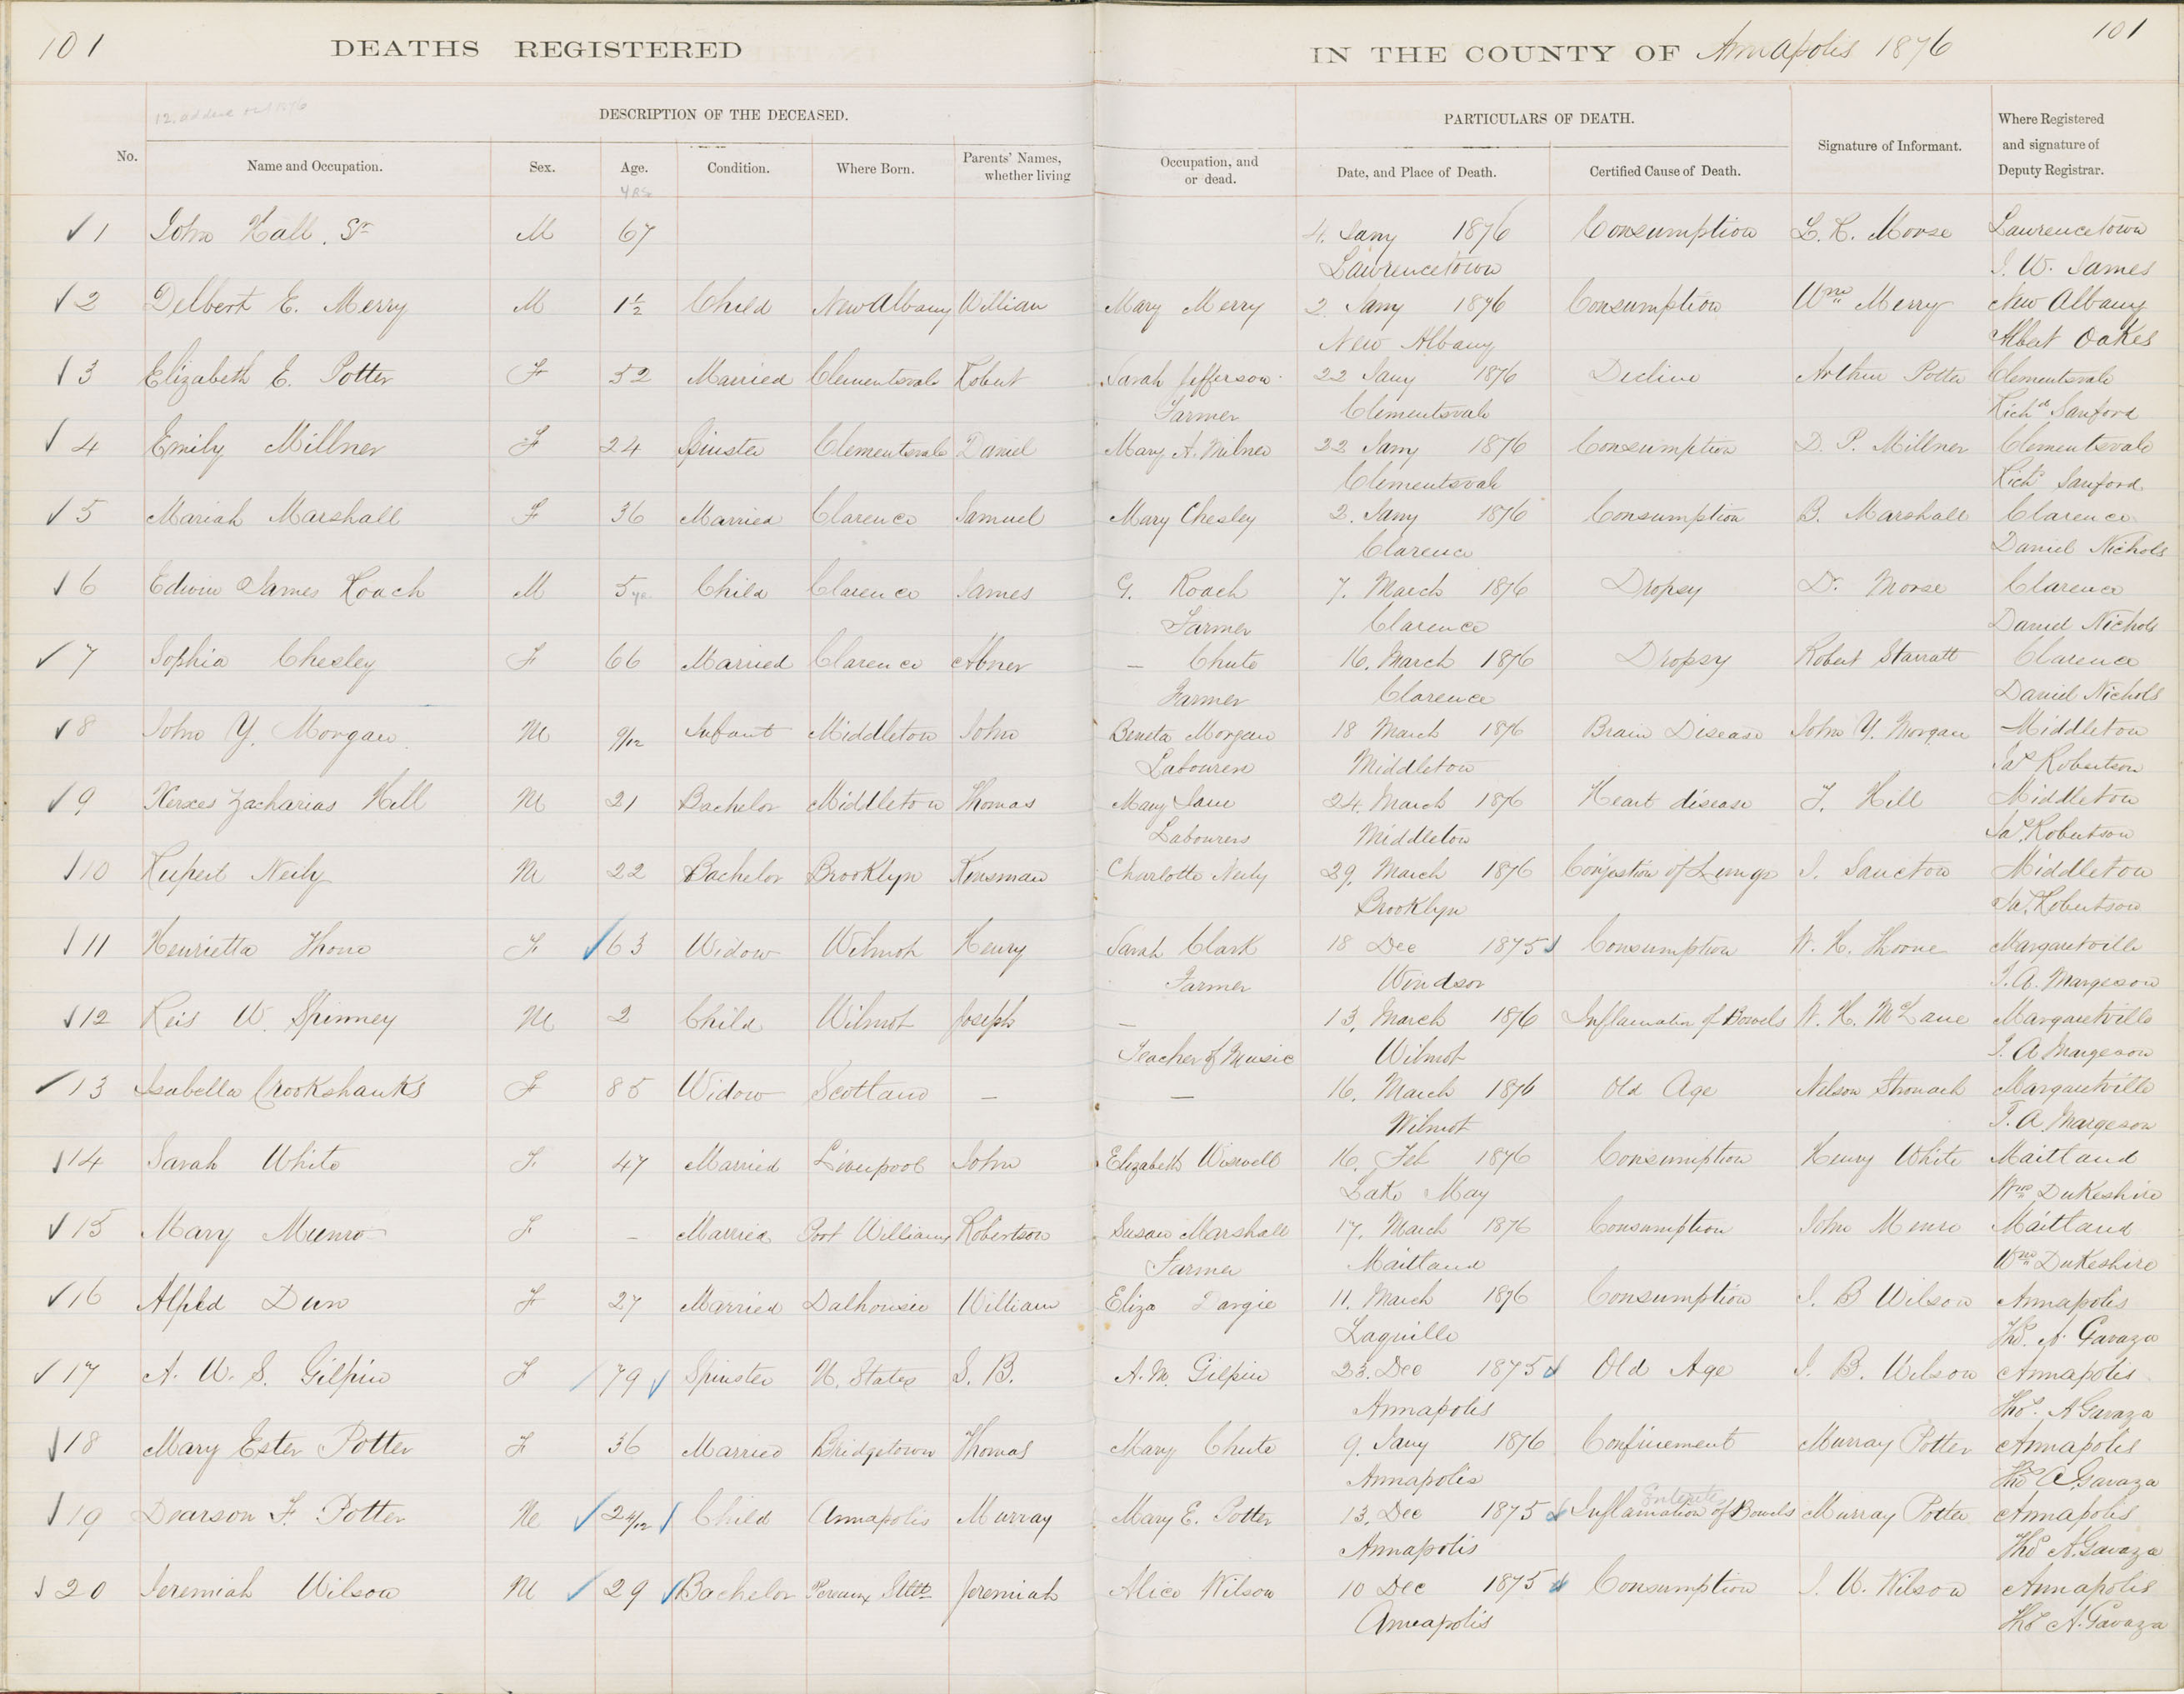 101 DEATHS REGISTERED IN THE COUNTY OF Annapolis 1876 101
DESCRIPTION OF THE DECEASED. PARTICULARS OF DEATH.
No. Name and Occupation. Sex. Age. Condition. Where Born. Parents' Names, whether living Occupation, and or dead. Date, and Place of Death. Certified Cause of Death. Signature of Informant. Where Registered and signature of Deputy Registrar.
1 John Hall. Sr M 67 4. Jany 1876 Consumption L. R. Morse Laurencetown
Lawrencetown J. W. James
2 Delbert E. Merry M 1½ Child New Albany William Mary Merry 2. Jany 1876 Consumption Wm Merry New Albany
New Albany Albert Oakes
3 Elizabeth E. Potter F 52 Married Clementsvale Robert Sarah Jefferson 22 Jany 1876 Decline Arthur Potter Clementsvale
Farmer Clementsvale Richd Sanford
4 Emily Millner F 24 Spinster Clementsvale Daniel Mary A. Milner 22 Jany 1876 Consumption D. P. Millner Clementsvale
Clementsvale Richd Sanford
5 Mariah Marshall F 36 Married Clarence Samuel Mary Chesley 2. Jany 1876 Consumption B. Marshall Clarence
Clarence Daniel Nichols
6 Edwin James Roach M 5 Child Clarence James G. Roach 7. March 1876 Dropsy D. Morse Clarence
Farmer Clarence Daniel Nichols
7 Sophia Chesley F 66 Married Clarence Abner — Chute 16. March 1876 Dropsy Robert Starratt Clarence
Farmer Clarence Daniel Nichols
8 John Y. Morgan M 9/12 Infant Middleton John Beneta Morgan 18 March 1876 Brain Disease John Y. Morgan Middleton
Labourer Middleton Jas Robertson
9 Xerxes Zacharias Hill M 21 Bachelor Middleton Thomas Mary Jane 24. March 1876 Heart disease T. Hill Middleton
Labourers Middleton Jas Robertson
10 Rupert Neily M 22 Bachelor Brooklyn Kinsman Charlotte Neily 29. March 1876 Conjestion of Lungs J. Sancton Middleton
Brooklyn Jas Robertson
11 Henrietta Thone F 63 Widow Wilmot Henry Sarah Clark 18 Dec 1875 Consumption W. H. Thorne Margaretville
Farmer Windsor T. A. Margeson
12 Reis W. Spinney M 2 Child Wilmot Joseph — 13. March 1876 Inflamatin of Bowels W. H. McLane Margaretville
Teacher of Music Wilmot T. A Margeson
13 Isabella Crookshanks F 85 Widow Scotland — — 16. March 1876 Old Age Nelson Stronach Margaretville
Wilmot T. A. Margeson
14 Sarah White F. 47 Married Liverpool John Elizabeth Wiswell 16. Feb 1876 Consumption Henry White Maitland
Lake May Wm Dukeshire
15 Mary Munro F — Married Port Williams Robertson Susan Marshall 17. March 1876 Consumption John Menro Maitland
Farmer Maitland Wm Dukeshire
16 Alfred Dun F 27 Married Dalhousie William Eliza Dargie 11. March 1876 Consumption J. B Wilson Annapolis
Laquille Thos. A. Gavaza
17 A. W. S. Gilpin F 79 Spinster U. States S. B. A. M. Gilpin 23. Dec 1875 Old Age J. B. Wilson Annapolis
Annapolis Thos. A Gavaza
18 Mary Ester Potter F 36 Married Bridgetown Thomas Mary Chute 9. Jany 1876 Confinement Murray Potter Annapolis
Annapolis Thos A Gavaza
19 Dearson F. Potter M 2 4/12 Child Annapolis Murray Mary E. Potter 13. Dec 1875 Inflamation of Bowels Murray Potter Annapolis
Annapolis Thos A. Gavaza
20 Jeremiah Wilson M 29 Bachelor Jeremiah Alice Wilson 10 Dec 1875 Consumption J. W. Wilson Annapolis
Annapolis Thos A. Gavaza